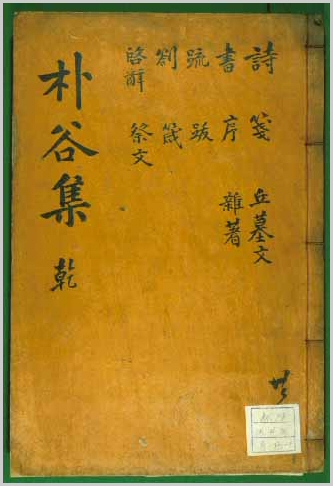 詩 箋 丘墓文
書 序 雜著
疏 跋
劄 箴
啓辭 祭文
朴谷集 乾